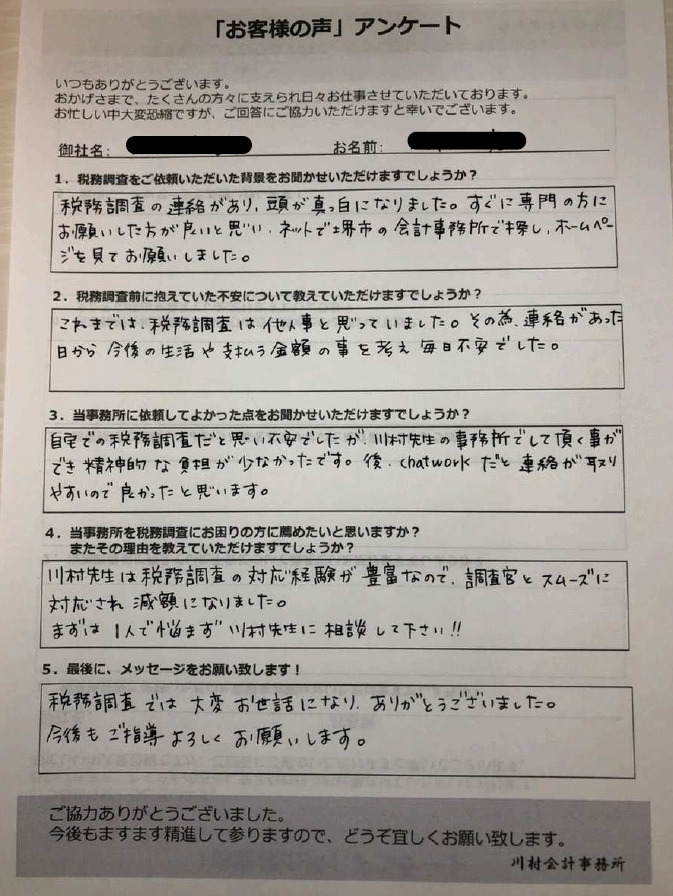 「お客様の声」アンケート
いつもありがとうございます。
おかげさまで、たくさんの方々に支えられ日々お仕事させていただいております。
お忙しい中大変恐縮ですが、ご回答にご協力いただけますと幸いでございます。
御社名: お名前:
1．税務調査をご依頼いただいた背景をお聞かせいただけますでしょうか？
税務調査の連絡があり、頭が真っ白になりました。すぐに専門の方に
お願いした方が良いと思い、ネットで堺市の会計事務所で探し、ホームペー
ジを見てお願いしました。
2．税務調査前に抱えていた不安について教えていただけますでしょうか？
これまでは、税務調査は他人事と思っていました。その為、連絡があった
日から今後の生活や支払う金額の事を考え毎日不安でした。
3．当事務所に依頼してよかった点をお聞かせいただけますでしょうか？
自宅での税務調査だと思い不安でしたが、川村先生の事務所でして頂く事が
でき精神的な負担が少なかったです。後、chatworkだと連絡が取り
やすいので良かったと思います。
4．当事務所を税務調査にお困りの方に薦めたいと思いますか？
またその理由を教えていただけますでしょうか？
川村先生は税務調査の対応経験が豊富なので、調査官とスムーズに
対応され減額になりました。
まずは1人で悩まず川村先生に相談して下さい!!
5．最後に、メッセージをお願い致します！
税務調査では大変お世話になり、ありがとうございました。
今後もご指導よろしくお願いします。
ご協力ありがとうございました。
今後もますます精進して参りますので、どうぞ宜しくお願い致します。
川村会計事務所